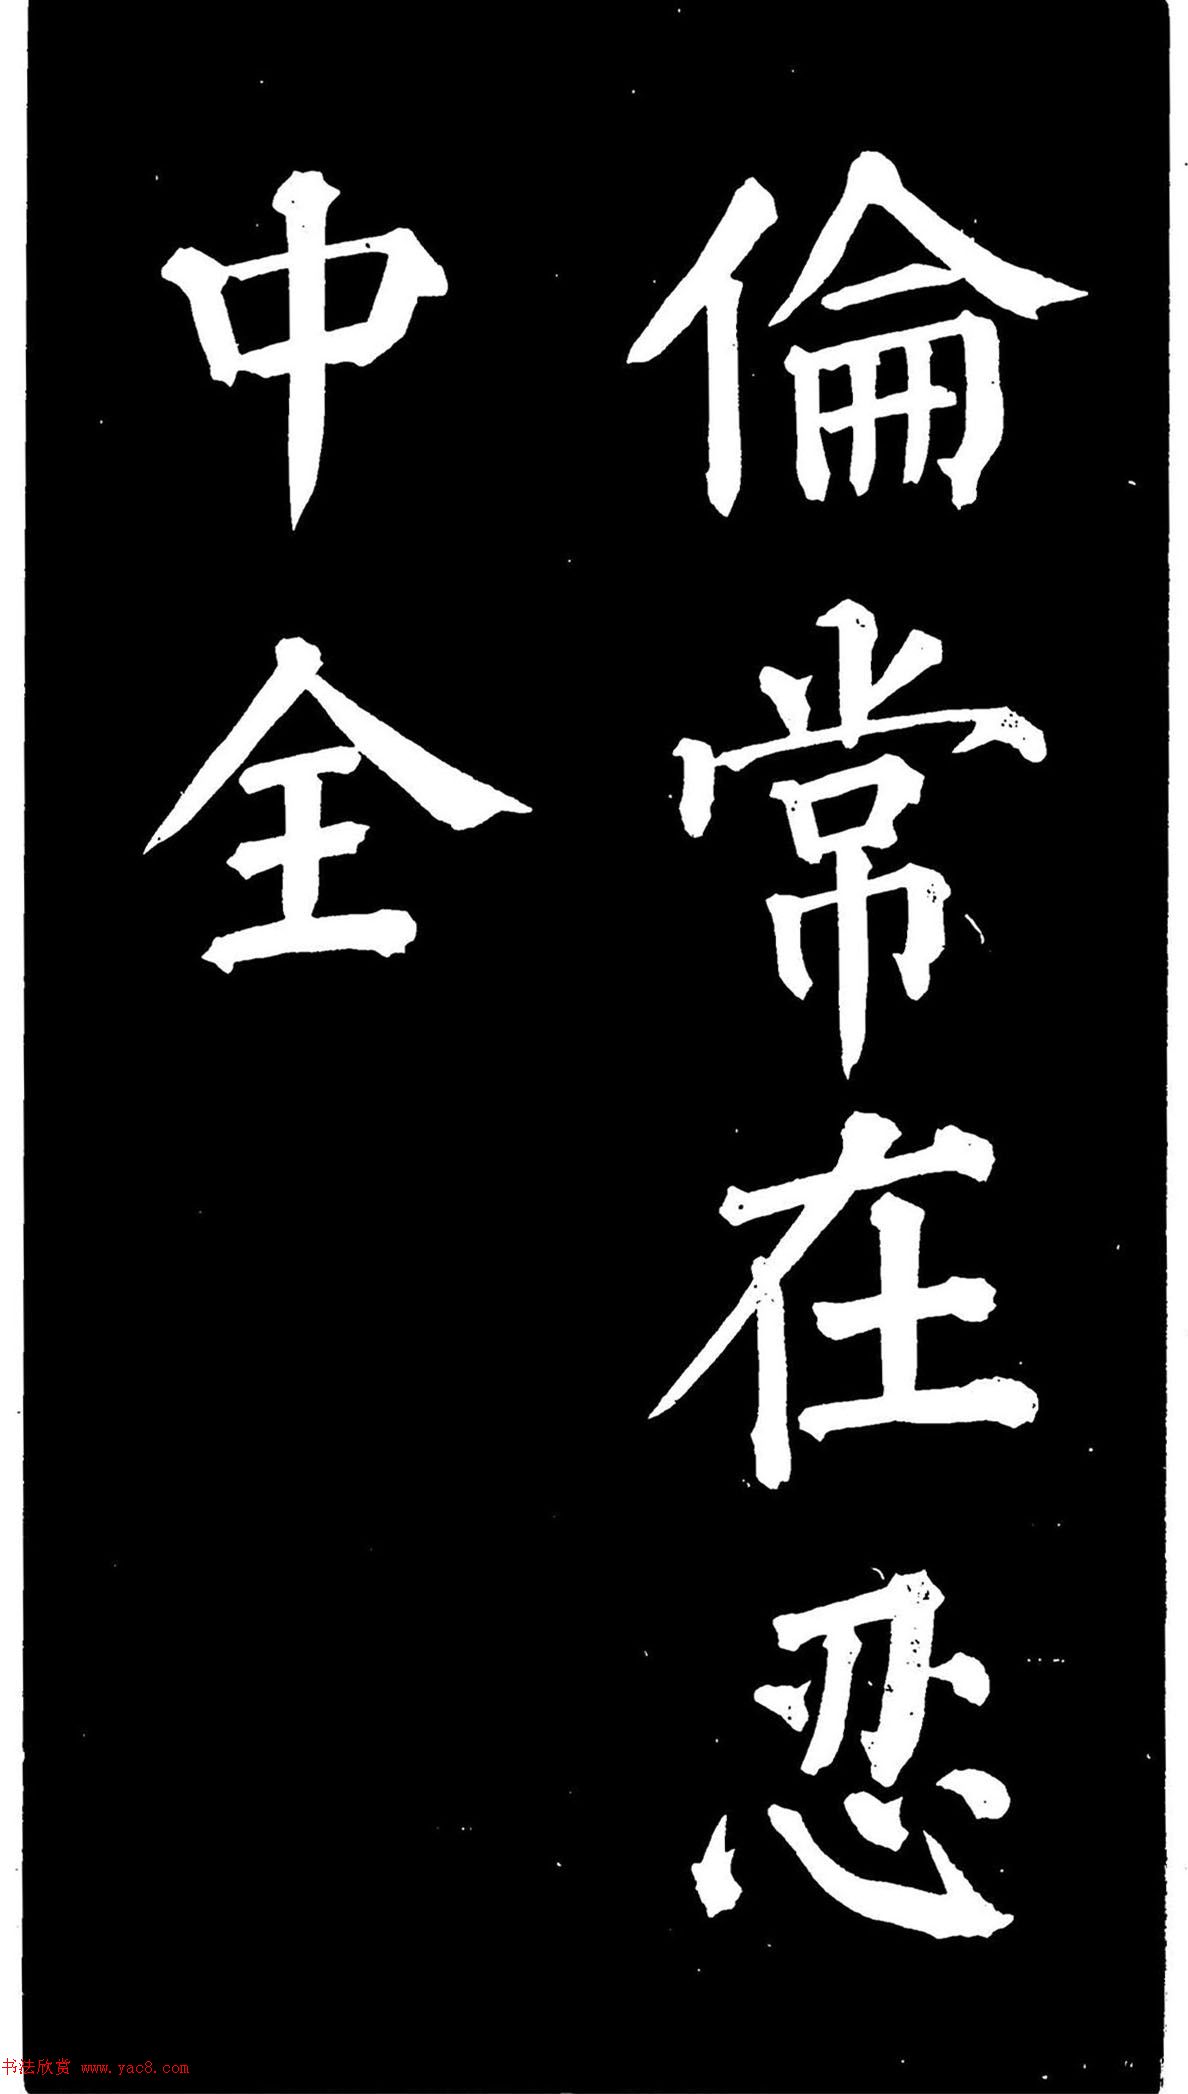 倫常在忍
中全
书法欣赏 www.yac8.com